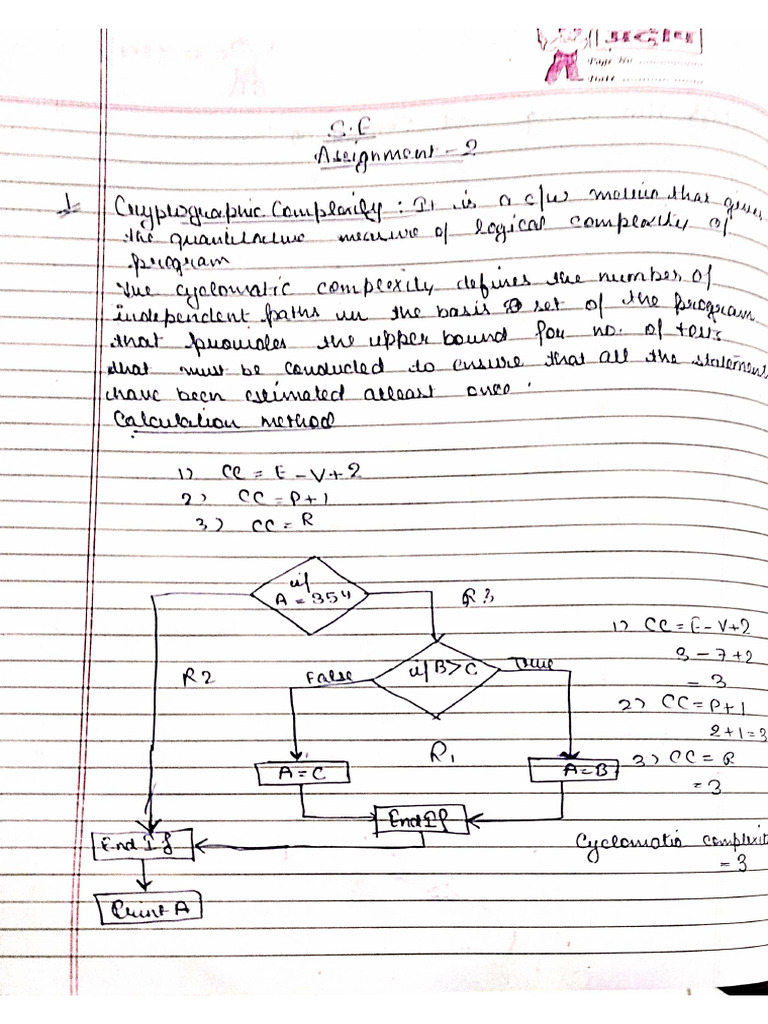 Page No. ...............
Date ...............
S.E
Assignment - 2
1 Cryptographic Complexity : It is a c/w metric that gives
the quantitative measure of logical complexity of
program
The cyclomatic complexity defines the number of
independent paths in the basis set of the program
that provides the upper bound for no. of tests
that must be conducted to ensure that all the statements
have been estimated atleast once.
Calculation method
1) CC = E - V + 2
2) CC = P + 1
3) CC = R
if
A = 354
R3
1) CC = E - V + 2
9 - 7 + 2
= 3
R2
False
if B > C
True
2) CC = P + 1
2 + 1 = 3
R1
A = C
A = B
3) CC = R
= 3
End If
End If
Cyclomatic complexit
= 3
Print A